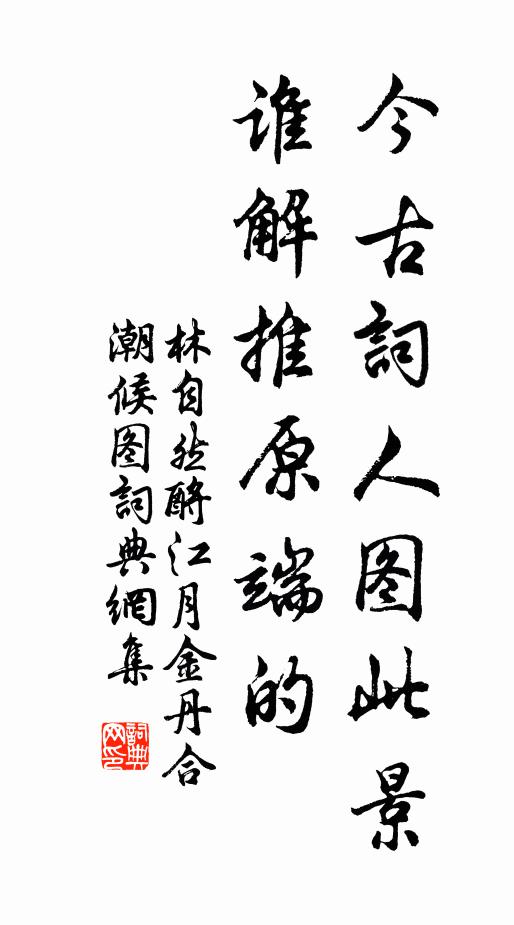 今古詞人图此景
谁解推原端的
林自然酹江月金丹合
潮候图詞典網集
詞典
网印